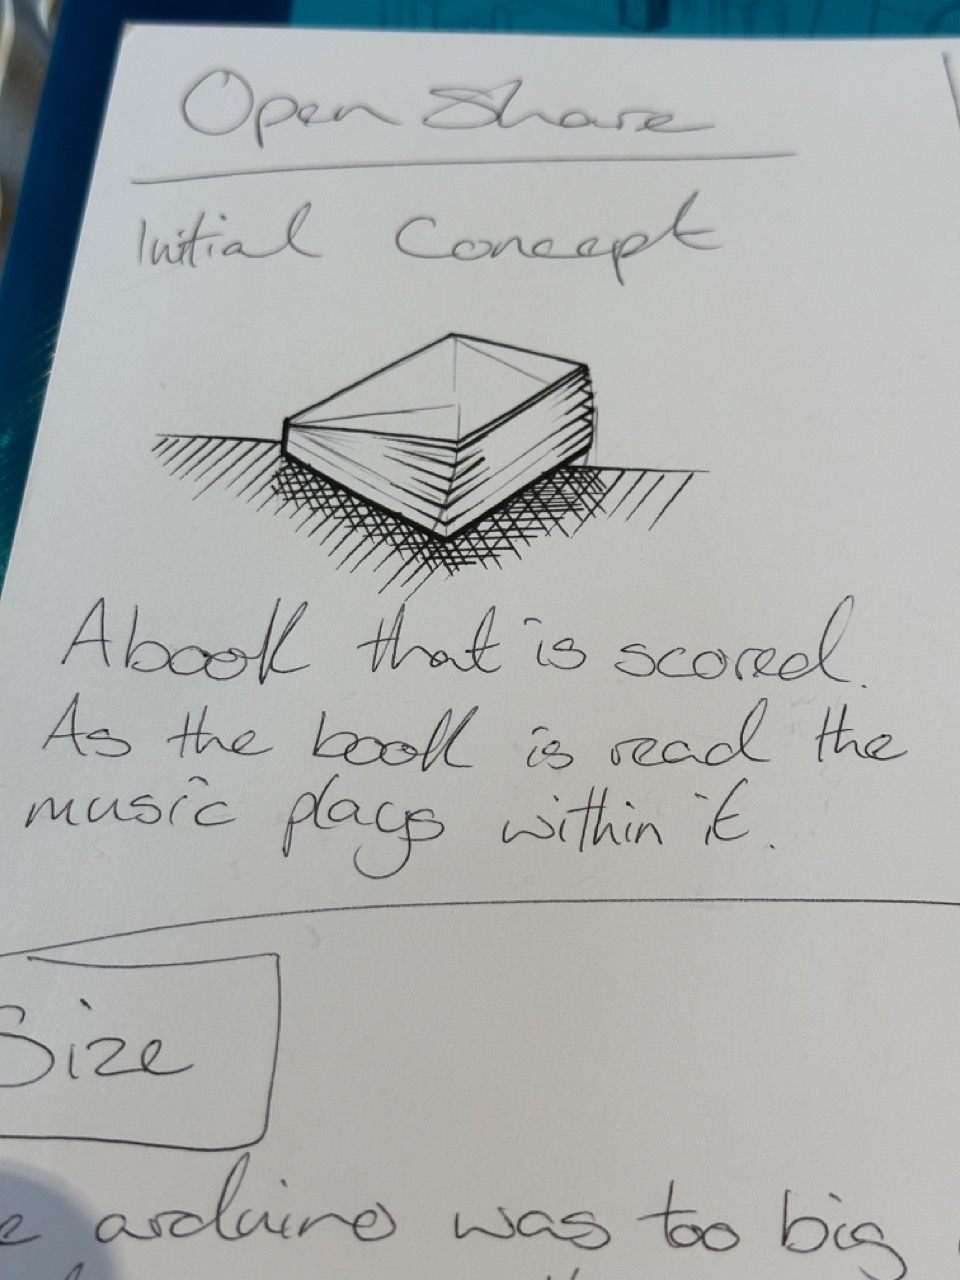 Open Share
Initial Concept
A book that is scored.
As the book is read the
music plays within it.
Size
arduino was too big